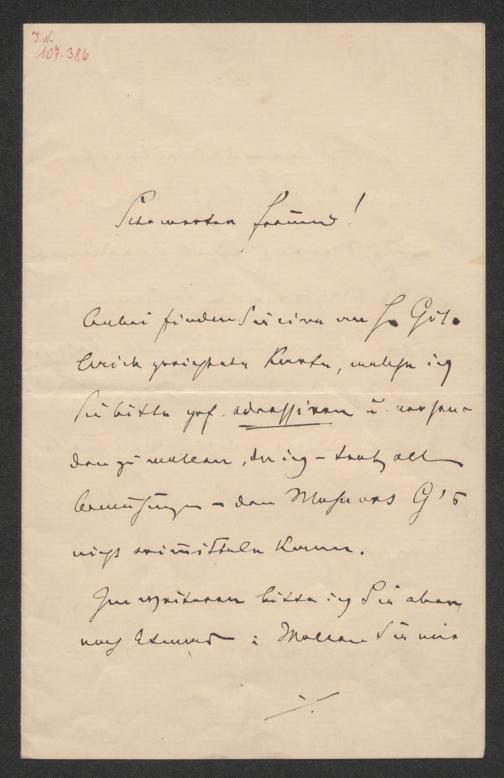 I.N.
107.386
Sehr werter Freund!
Anbei finden Sie eine an H. Gut.
brich gerichtete Karte, welche ich
Sie bitte gef. adressiren u. versen-
den zu wollen, da ich – trotz all
Bemühungen – den Wohnort G's
nicht ermitteln kann.
Im weiteren bitte ich Sie aber
noch Etwas: Wollen Sie mir
./.